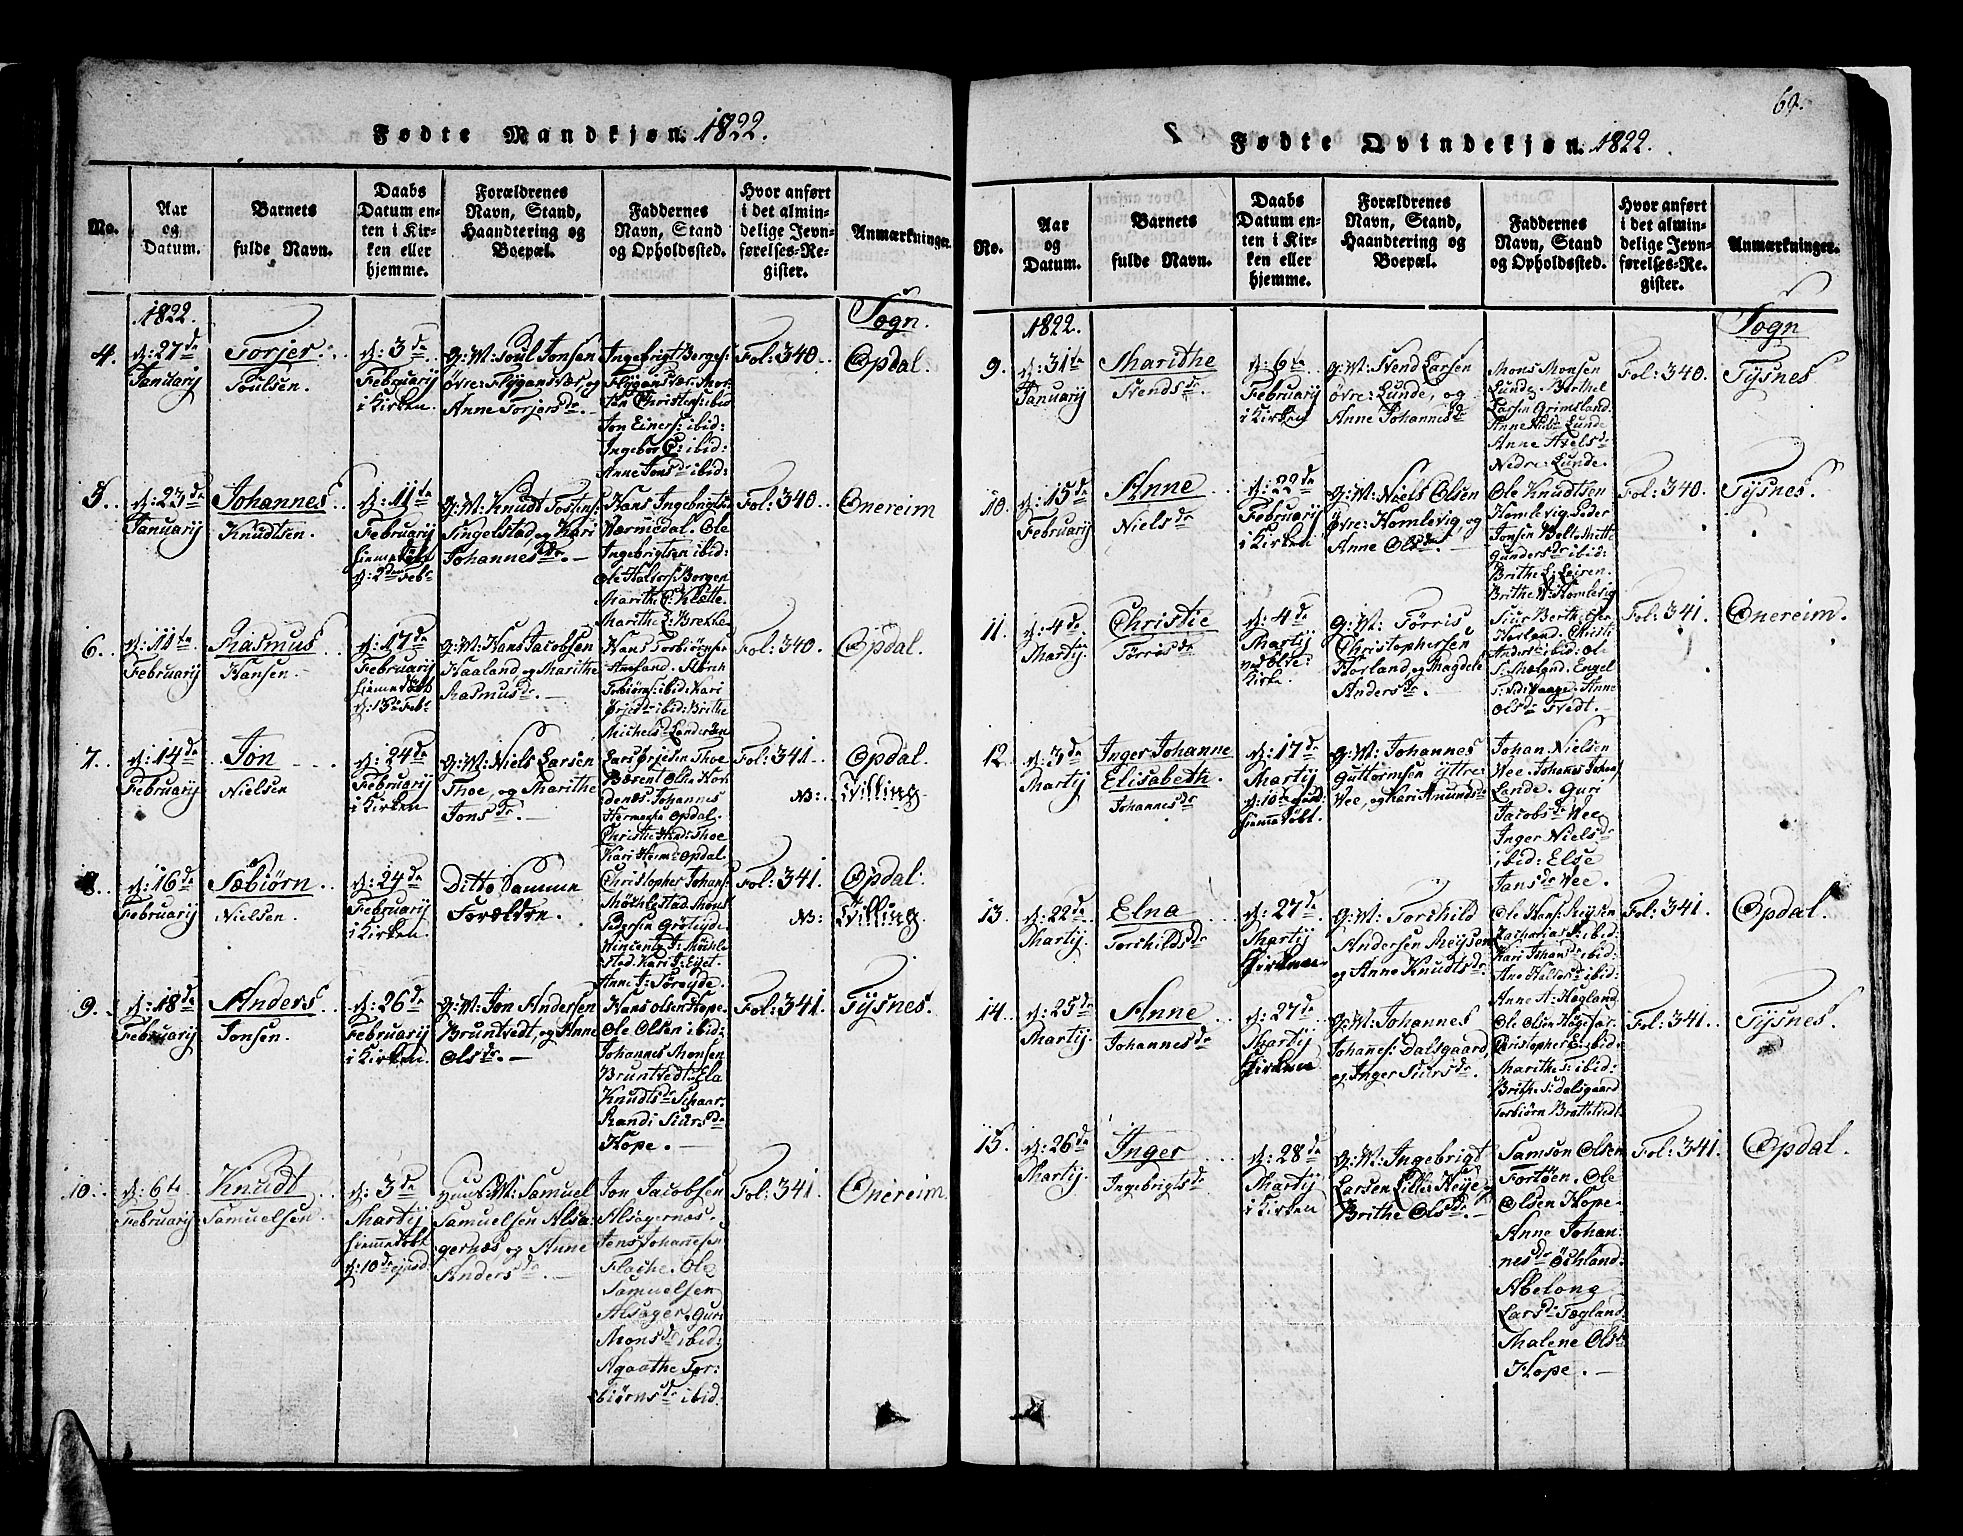 Fødte Mandkjøn. 1822.
No.
Aar
og
Datum.
Barnets
fulde Navn.
Daabs
Datum en-
ten i Kir-
ken eller
hjemme.
Forældrenes
Navn, Stand,
Haandtering og
Boepæl.
Faddernes
Navn, Stand
og Opholdssted.
Hvor anført
i det almin-
delige Jevn-
førelses-Re-
gister.
Anmærkninger.
1822.
Sogn.
4.
d: 27de
Januarij
Torjer
Poulsen.
d: 3de
Februarij
i Kirken.
g: M: Poul Jonsen
øvre: Flygansvær, og
Anne Torjersdr.
Ingebrigt Borges:
Flygansvær. Mor-
ten Christens: ibid
Jon Einers: ibid:
Ingebor E: ibid:
Anne Jonsdr ibid:
Fol: 340.
Opdal.
5.
d: 23de
Januarij
Johannes
Knudtsen.
d: 11te
Februarij
hiemedøbt
d: 2den Feb:
g: M: Knudt Tostens:
Singelstad, og Kari
Johannesdr.
Hans Ingebrigts:
Værmedal. Ole
Ingebrigtsen ibid:
Ole Haldors: Borgen
Marithe E: Klætte.
Marithe L: Brekke
Fol: 340.
Onereim
6.
d: 11te
Februarij
Rasmus
Hansen.
d: 17de
Februarij
hiemedøbt
d: 13de Feb:
g: M: Hans Jacobsen
Haaland, og Marithe
Rasmusdr.
Hans Torbiörns:
Torbiörns: ibid: Kari
ibid: Brithe
Michelsdr
Fol: 340.
Opdal.
7.
d: 14de
Februarij
Jon
Nielsen
d: 24de
Februarij
i Kirken
g: M: Niels Larsen
Thoe, og Marithe
Jonsdr.
Lars Ørjesen Thoe
Bærent Olsen
Johannes
Hermansen Opdal.
Christie Thoe
Kari Opdal.
Fol: 341.
NB:
Opdal.
Tvilling.
8.
d: 16de
Februarij
Sæbiörn.
Nielsen.
d: 24de
Februarij
i Kirken.
Ditto Samme
Forældre.
Christopher Johans:
Møchlestad. Mons
Pedersen
Kari J: Eget.
Anne J:
Fol: 341.
NB:
Opdal.
Tvilling
9.
d: 18de
Februarij
Anders
Jonsen.
d: 26de
Februarij
i Kirken
g: M: Jon Andersen
Bruntvedt, og Anne
Olsdr.
Hans Olsen Hope.
Ole Olsen ibid:
Johannes Monsen
Bruntvedt. Ela
Knudtsdr Schaar.
Randi Siursdr
Hope.
Fol: 341.
Tysnes.
10.
d: 6te
Februarij
Knudt
Samuelsen.
d: 3de
Martij
hiemedøbt
d: 10de ejusd:
M: Samuel
Samuelsen Alsa-
gernæs, og Anne
Andersdr.
Jon Jacobsen
Alsagernæs.
Jens Johannesen
Flache. Ole
Samuelsen
Alsager. Guri
Monsdr ibid:
Agaathe Tor-
biörnsdr ibid:
Fol: 341.
Onereim.
69.
2
Fødte Qvindekjøn. 1822.
No.
Aar
og
Datum.
Barnets
fulde Navn.
Daabs
Datum en-
ten i Kir-
ken eller
hjemme.
Forældrenes
Navn, Stand,
Haandtering og
Boepæl.
Faddernes
Navn, Stand
og Opholdssted.
Hvor anført
i det almin-
delige Jevn-
førelses-Re-
gister.
Anmærkninger.
1822.
Sogn
9.
d: 31te
Januarij
Marithe
Svendsdr
d: 6te
Februarij
i Kirken
g: M: Svend Larsen
øvre: Lunde, og
Anne Johannesdr
Mons Monsen
Lunde. Barthel
Larsen Grimsland.
Anne Lunde
Anne Axelsdr
Nedre: Lunde.
Fol: 340.
Tysnes.
10.
d: 15de
Februarij
Anne
Nielsdr
d: 22de
Februarij
i Kirken
g: M: Niels Olsen
Øvre: Homlevig, og
Anne Olsdr.
Ole Knudtsen
Homlevig. Peder
Jonsen Mette
Gundersdr ibid:
Brithe L: Leiren.
Brithe N: Homlevig
Fol: 340.
Tysnes.
11.
d: 4de
Martij
Christie
Torrisdr
d: 4de
Martij
Kirke.
g: M: Torris
Christophersen
Horland, og Magdele
Andersdr.
Horland. Christi
Andersdr ibid: Ole
S: Mæland. Engel
Vaage. Anne
Olsdr Tvedt.
Fol: 341.
Onereim.
12.
d: 3de
Martij
Inger Johanne
Elisabeth.
Johannesdr
d: 17de
Martij
d: 10de ejusd:
hiemedøbt.
g: M: Johannes
Guttormsen ÿttre:
Vee, og Kari Amundsdr
Johan Nielsen
Vee. Johannes
Lande. Guri
Jacobsdr Vee
Inger Nielsdr
ibid: Else
Jansdr Vee.
13.
d: 22de
Martij
Elna
Torchildsdr
d: 27de
Martij
i Kirken
g: M: Torchild
Andersen Reÿsen
og Anne Knudtsdr
Ole Hans: Reysen
Zacharias ibid:
Kari Johansdr ibid:
ibid:
Anne A: Hægland
Fol: 341.
Opdal.
14.
d: 25de
Martij
Anne
Johannesdr
d: 27de
Martij
i Kirken
g: M: Johannes
Johannes: Dalsgaard,
og Inger Siursdr.
Ole Olsen
Christopher E: ibid:
Marithe S: ibid:
Brithe S: Dalsgaard
Torbiørn Brattetvedt
Fol: 341.
Tysnes.
15.
d: 26de
Martij.
Inger
Ingebrigtsdr
d: 28de
Martij
i Kirken
g: M: Ingebrigt
Larsen Lille Heÿe, og
Brithe Olsdr.
Samson Olsen
Tortöen. Ole
Olsen Hope.
Anne Johan-
nesdr Öchland.
Abelone
Larsdr Tægland.
Malene Olsdr
Hope.
Fol: 341.
Opdal.